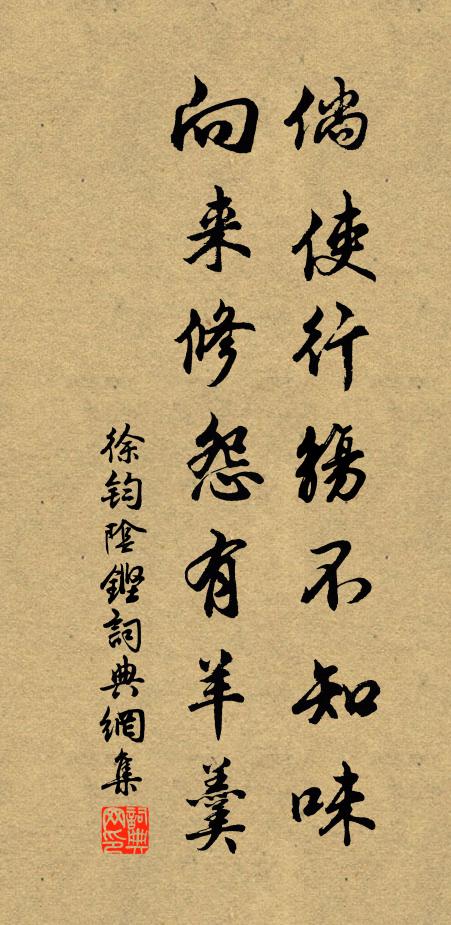 倘使行觴不知味
向来修怨有羊羹
徐钧陰鏗詞典網集
詞典网印